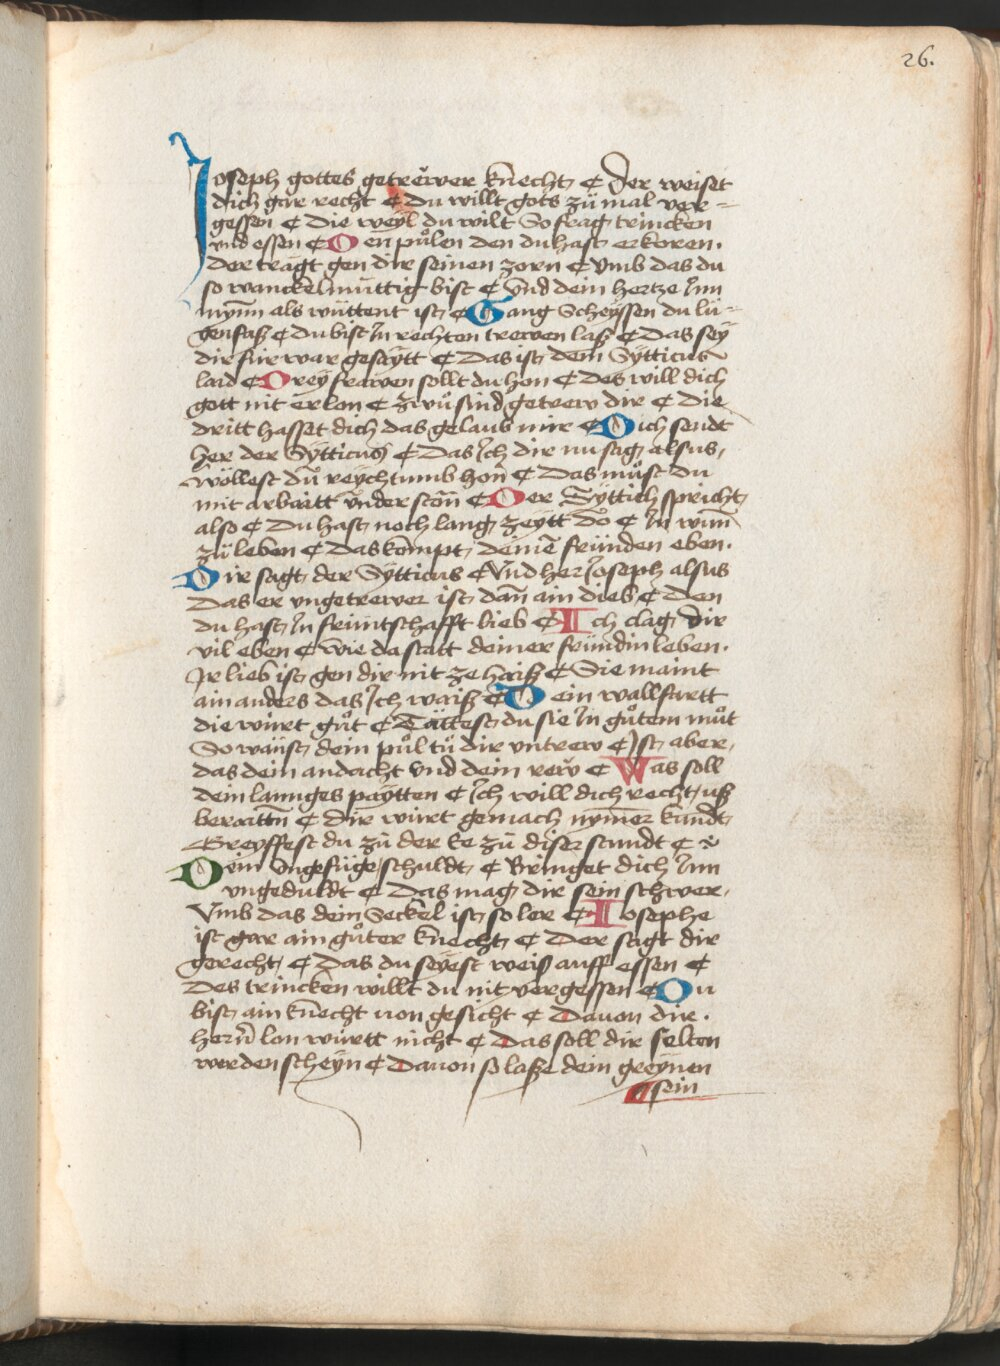 26.
Joseph gottes getrewer knecht ¶ Der weiset
dich gar recht ¶ Du willt gots zu mal ver=
gessen ¶ Die weyl du wilt So frag trincken
vnd essen ¶ Den půlen den du hast erkoren.
Der tragt gen dir seinen zorn ¶ Vmb das du
so wanckelmuttig bist ¶ Vnd dein hertze Inn
nymm als wüttent ist ¶ Gang Scheyssen du lü=
genfasß ¶ du bist In rechten trewen lasß ¶ Das sey
dir fur war gesaytt ¶ Das ist dem Sytticus
laid ¶ Drey frawen sollt du hon ¶ Des will dich
gott nit erlon ¶ zwů sind getrew dir ¶ Die
dritt hasset dich das gelaub mir ¶ Dich sendt
her der Sytticus ¶ Das Ich dir nu sag alsus
Wöllest du reychtumb hon ¶ Das můst du
mit arbaitt vnderston ¶ Der Syttich spricht
also ¶ Du hast noch lang zeytt do ¶ In wunn
zü leben ¶ das kompt deine fründen eben.
Dir sagt der Sytticus ¶ Vnd her Joseph alsus
Das er vngetrewer ist dan ain dieb ¶ Den
du hast In frintschafft lieb ¶ Ich clag dir
vil eben ¶ wie da statt deiner fründin leben.
Ir lieb ist gen dir nit ze haiß ¶ Sie maint
ain anders das Ich waiß ¶ Dein wallfartt
die würt gůt ¶ Tättest du sie In gůtem můt
So wäiist dein půl tů dir vntrew ¶ Ist aber
das dein andacht vnd dein rew ¶ Was soll
dein lannges paytten ¶ Ich will dich recht uß
beraittn ¶ Dir würt gemach nymer kundt
Greyffest du zü der ke zü diser stundt ¶
Dein vngefüge schuldt ¶ Bringet dich Inn
vngeduldt ¶ Das mag dir sein schwer
Vmb das dein Seckel ist so ler ¶ Josephe
ist gar ain gůter knecht ¶ Der sagt dir
gerecht ¶ Das du seyest weis auff essen ¶
Des trincken willt du nit vergessen ¶ Du
bist ain knecht von gesicht ¶ Dauon dir.
hern lon württ nicht ¶ Das soll dir selten
werden scheyn ¶ Dauon so laße dein greynen
sein